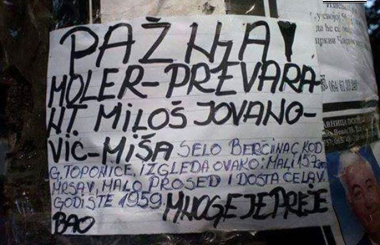 PAŽNJA!
MOLER-PREVARA-
NT MILOŠ JOVANO-
VIĆ-MIŠA SELO BERČINAC KOD
G. TOPONICE, IZGLEDA OVAKO: MALI 157cm
MRŠAV, MALO PROSED I DOSTA ĆELAV,
GODIŠTE 1959. MNOGE JE PREJE
BAO